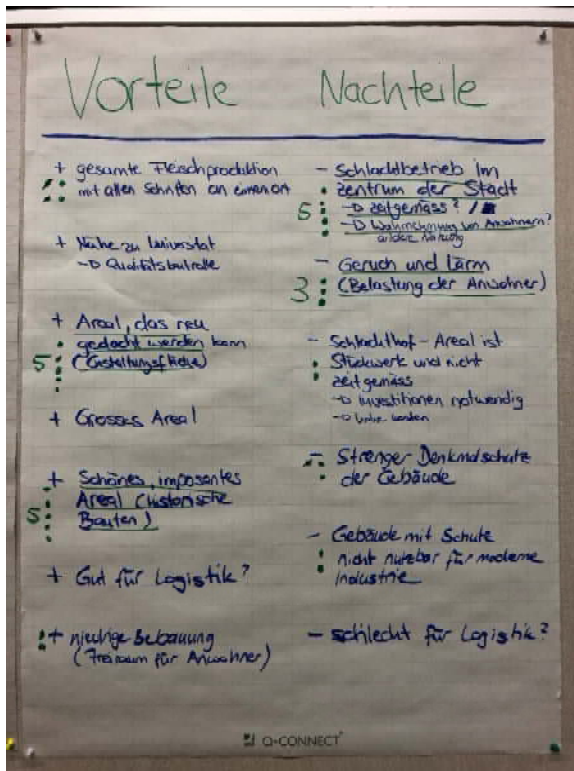 Vorteile
+ gesamte Fleischproduktion
mit allen Schritten an einem Ort
+ Nähe zu Universität
→ Qualitätskontrolle
+ Areal, das neu
gedacht werden kann
5 (Gestaltungsfläche)
+ Grosses Areal
+ Schönes, imposantes
Areal (historische
5 Bauten)
+ Gut für Logistik?
+ niedrige Bebauung
(Freiraum für Anwohner)
Nachteile
- Schlachtbetrieb im
Zentrum der Stadt
5 → zeitgemäss? /
→ Wahrnehmung von Anwohnern?
- Geruch und Lärm
3 (Belastung der Anwohner)
- Schlachthof-Areal ist
Stückwerk und nicht
zeitgemäss
→ Investitionen notwendig
→ kosten
- Strenger Denkmalschutz
der Gebäude
- Gebäude mit Schutz
nicht nutzbar für moderne
Industrie
- schlecht für Logistik?
Q-CONNECT